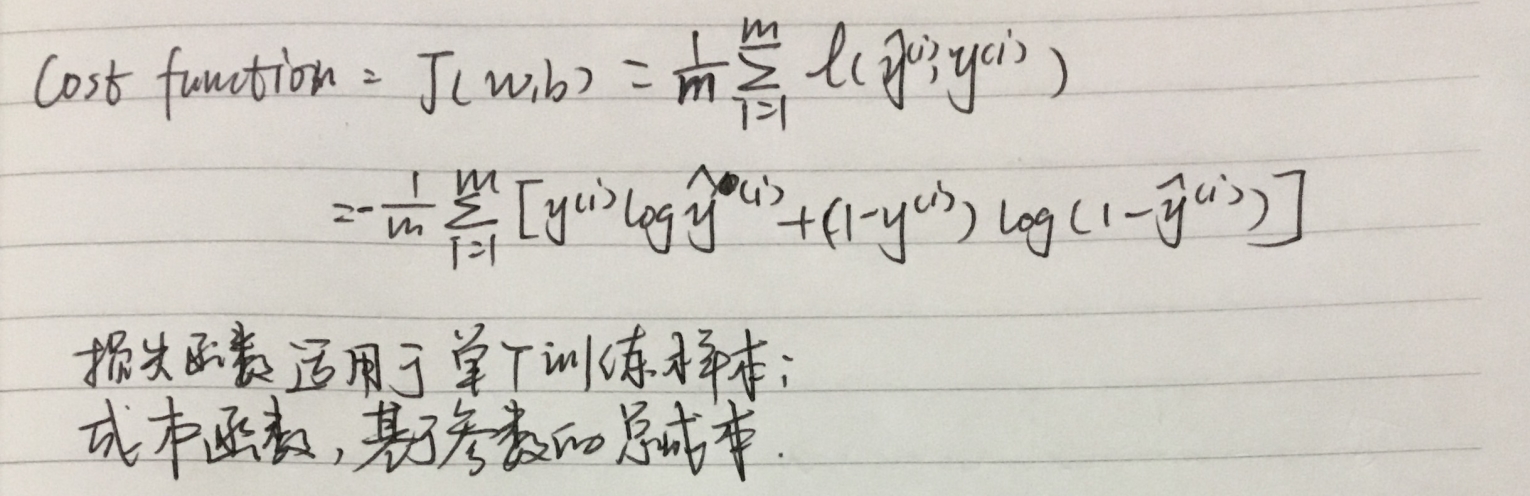 Cost function = J(w,b) = 1/m ∑_{i=1}^{m} l(ŷ^{(i)}, y^{(i)})
= -1/m ∑_{i=1}^{m} [y^{(i)} log ŷ^{(i)} + (1-y^{(i)}) log(1-ŷ^{(i)})]
损失函数适用于单个训练样本;
成本函数,基于参数的总成本.